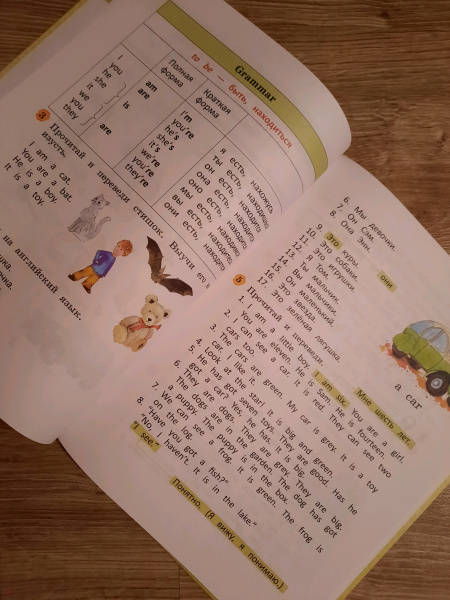 Grammar
to be — быть, находиться
Полная форма
Краткая форма
I am I'm я есть, нахожусь
you are you're ты есть, находишься
he he's он есть, находится
she is she's она есть, находится
it it's оно есть, находится
we we're мы есть,
you are you're вы есть,
they they're они есть,
3 Прочитай и переведи стишок. Выучи его
наизусть.
I am a cat.
You are a bat.
He is a boy.
It is a toy.
на английский язык.
6. Мы девочки.
7. Он Сэм.
8. Она Энн.
9. Это куры.
они
10. Это собаки.
11. Это игрушки.
12. Я Том.
13. Ты мальчик.
14. Вы мальчики.
15. Он маленький.
16. Это звезда.
17. Это зелёная лягушка.
a car
5 Прочитай и переведи.
I am six.
Мне шесть лет.
1. I am a little boy. I am six. You are a girl.
You are eleven. He is Sam. He is fourteen.
2. I can see a car. It is red. They can see two
cars too.
3. The cars are green. My car is grey. It is a toy
car. I like it.
4. Look at the star! It is big and green.
5. He has got seven toys. They are good. Has he
got a car? Yes, he has. It is big.
6. They are dogs. They are grey. They are big.
The dogs are in the garden. The dog has got
a puppy. The puppy is in the box.
7. We can see a frog. It is green. The frog is
on the log.
8. "Have you got a fish?"
"No, I haven't. It is in the lake."
I see.
Понятно. (Я вижу, я понимаю.)